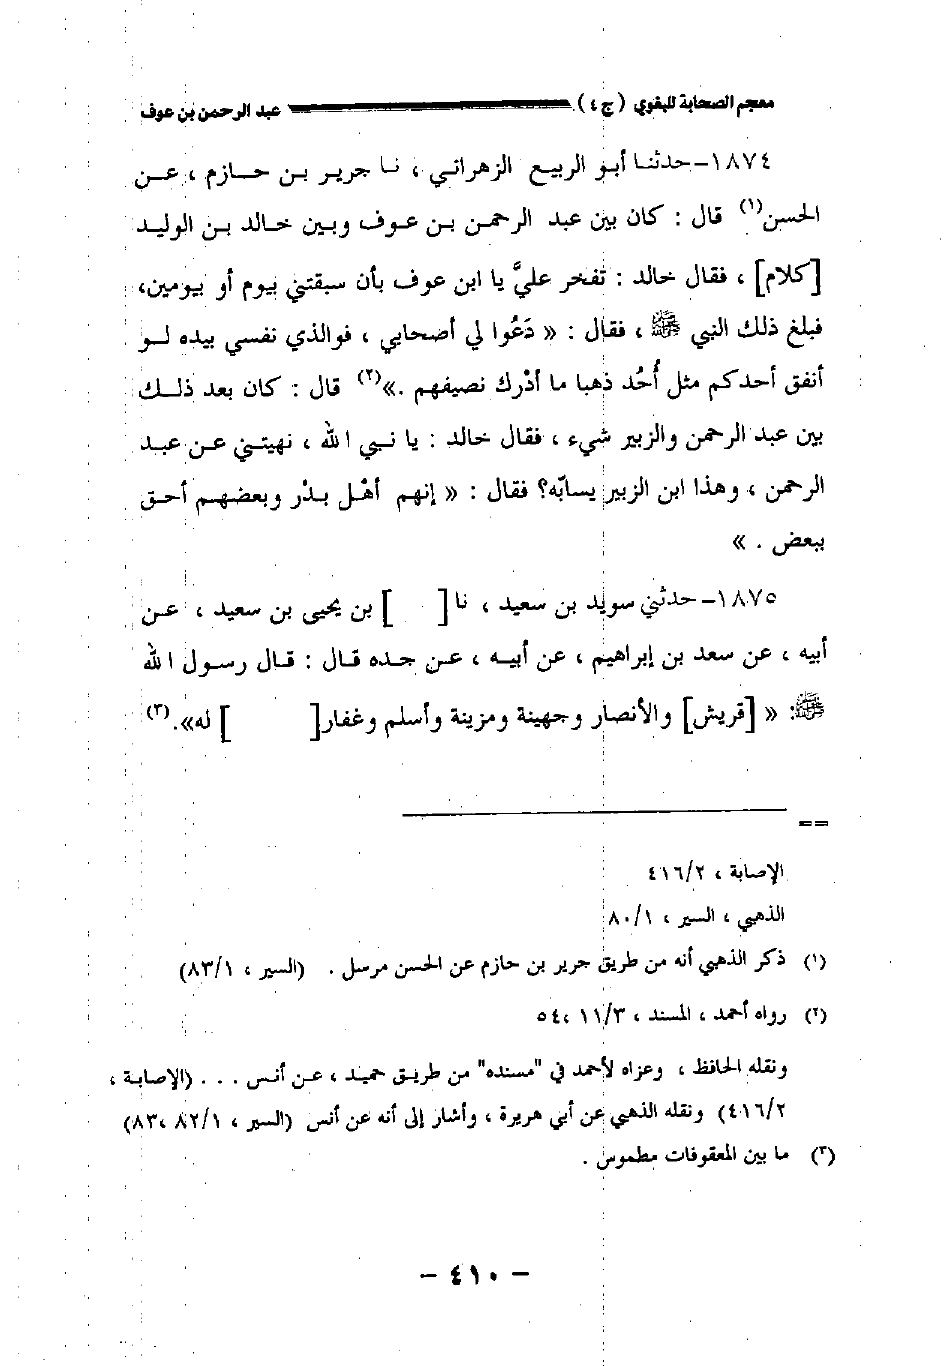 معجم الصحابة للبغوي (ج ٤) عبد الرحمن بن عوف
١٨٧٤- حدثنا أبو الربيع الزهراني ، نا جرير بن حازم ، عن
الحسن(١) قال : كان بين عبد الرحمن بن عوف وبين خالد بن الوليد
[كلام] ، فقال خالد : تفخر عليَّ يا ابن عوف بأن سبقتني بيوم أو بيومين،
فبلغ ذلك النبي ﷺ ، فقال : « دَعُوا لي أصحابي ، فوالذي نفسي بيده لو
أنفق أحدكم مثل أُحُد ذهبا ما أدْرك نصيفهم .»(٢) قال : كان بعد ذلك
بين عبد الرحمن والزبير شيء ، فقال خالد : يا نبي الله ، نهيتني عن عبد
الرحمن ، وهذا ابن الزبير يسابّه؟ فقال : « إنهم أهْل بدْر وبعضهم أحق
ببعض . »
١٨٧٥- حدثني سويد بن سعيد ، نا [ ] بن يحيى بن سعيد ، عن
أبيه ، عن سعد بن إبراهيم ، عن أبيه ، عن جده قال : قال رسول الله
ﷺ: « [قريش] والأنصار وجهينة ومزينة وأسلم وغفار[ ] له».(٣)
==
الإصابة ، ٤١٦/٢
الذهبي ، السير ، ٨٠/١
(١) ذكر الذهبي أنه من طريق جرير بن حازم عن الحسن مرسل . (السير ، ٨٣/١)
(٢) رواه أحمد ، المسند ، ١١/٣ ،٥٤
ونقله الحافظ ، وعزاه لأحمد في "مسنده" من طريق حميد ، عن أنس . . . (الإصابة ،
٤١٦/٢) ونقله الذهبي عن أبي هريرة ، وأشار إلى أنه عن أنس (السير ، ٨٢/١ ،٨٣)
(٣) ما بين المعقوفات مطموس .
- ٤١٠ -